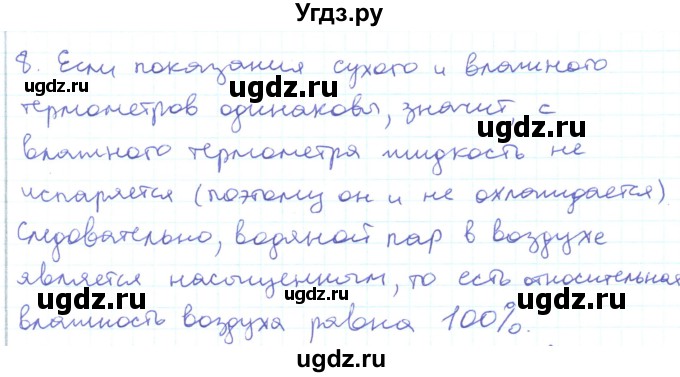 Угдз.ру
8. Если показания сухого и влажного
термометров одинаковы, значит, с
влажного термометра жидкость не
испаряется (поэтому он и не охлаждается)
Следовательно, водяной пар в воздухе
является насыщенным, то есть относительная
влажность воздуха равна 100%.
ugdz.ru ugdz.ru
ugdz.ru ugdz.ru
ugdz.ru ugdz.ru
ugdz.ru ugdz.ru
ugdz.ru ugdz.ru
ugdz.ru